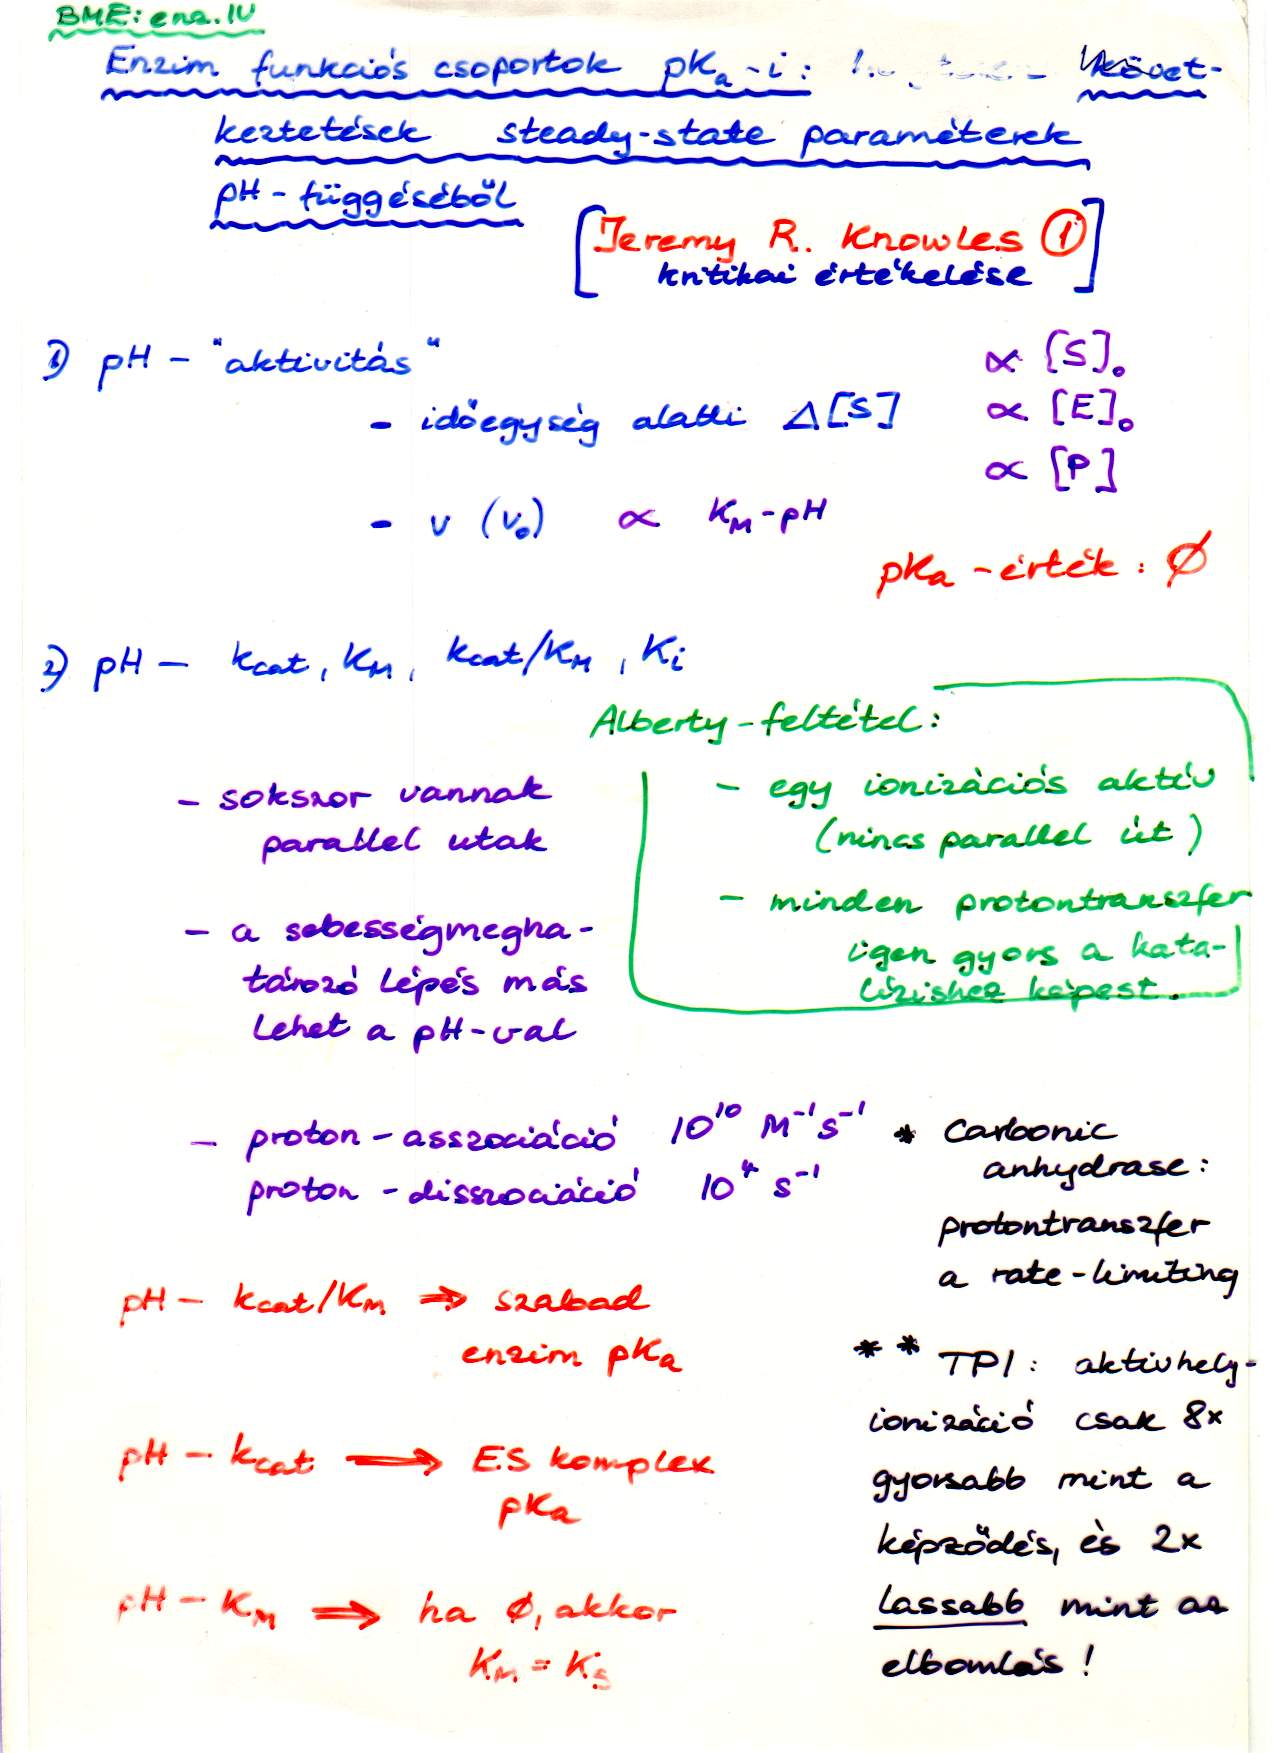 BME: enz. IV
Enzim funkciós csoportok pKa-i: követ-
keztetések steady-state paraméterek
pH-függéséből
[Jeremy R. Knowles ①
kritikai értékelése]
1) pH - "aktivitás"
- időegység alatti Δ[S]
∝ [S]₀
∝ [E]₀
∝ [P]
- v (v₀) ∝ KM-pH
pKa-érték: ∅
2) pH - kcat, KM, kcat/KM, Ki
Alberty-feltétel:
- egy ionizációs aktív
(nincs parallel út)
- minden protontranszfer
igen gyors a kata-
lízishez képest.
- sokszor vannak
parallel utak
- a sebességmegha-
tározó lépés más
lehet a pH-val
- proton-asszociáció 10¹⁰ M⁻¹s⁻¹
proton-disszociáció 10⁴ s⁻¹
* Carbonic
anhydrase:
protontranszfer
a rate-limiting
pH - kcat/KM ⇒ szabad
enzim pKa
pH - kcat ⇒ ES komplex
pKa
pH - KM ⇒ ha ∅, akkor
KM = Ks
** TPI: aktívhely-
ionizáció csak 8x
gyorsabb mint a
képződés, és 2x
lassabb mint az
elbomlás!